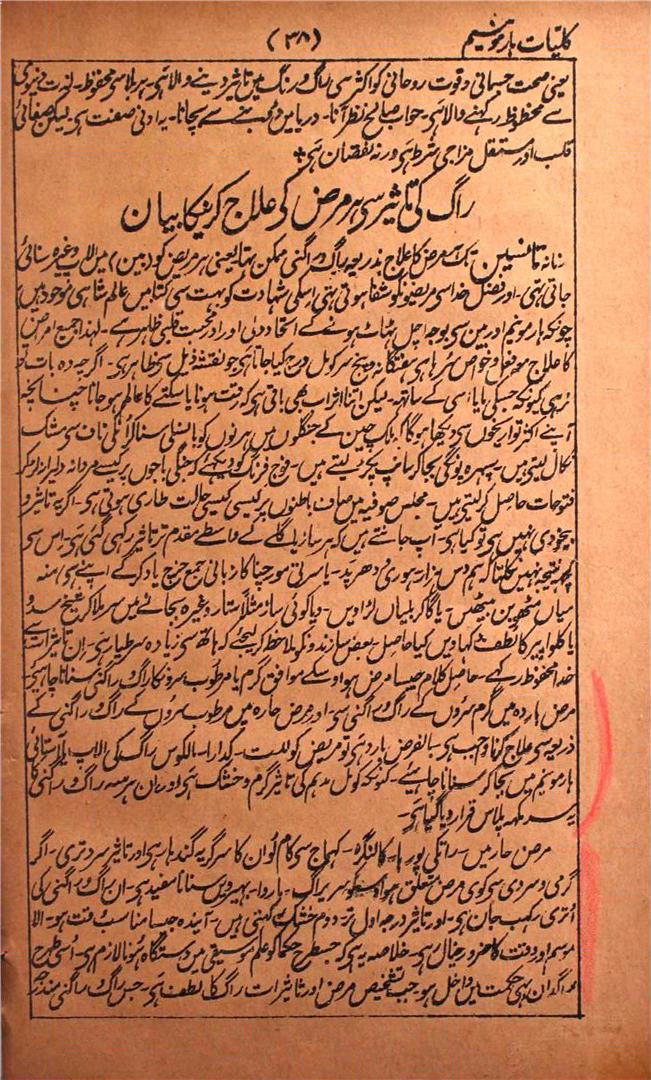 کلیّات ہارمونیم (۳۸)
یعنی صحت جسمانی و قوت روحانی کو اکثر سی راگ و رنگ میں تاثیر دینے والا ہی ہر بلا سی محفوظ۔ لذت دنیوی
سے محظوظ رکہنے والا ہی۔ خواب صالح نظر آنا۔ دریا میں ڈوبنے سے بچانا۔ یہ ادنی صفت ہی۔ لیکن صفائی
قلب اور مستقل مزاجی شرط ہی ورنہ نقصان ہی +
راگ کی تاثیر سی ہر مرض کی علاج کرنیکا بیان
زمانہ تک ہر مرض کا علاج بذریعہ راگ و راگنی ممکن تہا یعنی ہر مریض کو (بین) میں الاپ وغیرہ سنائی
جاتی تہی۔ اور بفضل خدا سی مریضونکو شفا ہوتی تہی اسکی شہادت کو بہت سی کتابیں عالم شاہی موجود ہیں
چونکہ ہارمونیم اور بین سی بوجہ اچل ٹہاٹ ہونے کے اتحاد دلی اور محبت قلبی ظاہر ہے۔ لہذا جمیع امراض
کا علاج موقع و خواص سُر ہا ہی ہفتگانہ و پنج سر کومل درج کیا جاتا ہی جو نقشہ ذیل سی ظاہر ہی۔ اگرچہ وہ بات تو
نرہی کیونکہ جسکی بات اسی کے ساتہہ۔ لیکن اتنا اثر اب بھی باقی ہی کہ رقت ہونا یا سکتے کا عالم ہو جانا چنانچہ
آپنے اکثر تواریخوں سی دیکہا ہوگا ملک چین کے جنگلوں میں ہرنوں کو بانسلی سنا کر انکی ناف سی مشک
نکال لیتی ہیں۔ سپہرہ پونگی بجا کر سانپ پکڑ لیتے ہیں۔ فوج فرنگ کو دیکہئے کہ جنگی باجوں پر کیسے مردانہ دلیرانہ لڑ کر
فتوحات حاصل کر لیتی ہیں۔ مجلس صوفیہ میں صاف باطنوں پر کیسی کیسی حالت طاری ہوتی ہی۔ اگر یہ تاثیر و
بیخودی نہیں ہی تو کیا ہی۔ آپ جانتے ہیں کہ ہر ساز یا گلے کے واسطے مقدم تر تاثیر رکہی گئی ہی۔ اس سی
کچہہ نتیجہ نہیں نکلتا کہ ہم دس ہزار ہوری دُھرپد۔ یا سرتی مورچہنا کا زبانی جمع خرچ یاد کر کے اپنے ہی منہ
میاں مٹھو بن بیٹھیں۔ یا گا کر بلیاں لڑا ویں۔ ویا کوئی ساز مثلاً ستار وغیرہ بجانے میں سر ملا کر شیخ سدّو
یا کلوا پیر کا لطف دکہاویں کیا حاصل۔ بعض سازندونکو ملاحظہ کر لیجئے کہ ہاتہہ سی زیادہ سر ہلا ہی۔ ان تاثیرات سے
خدا محفوظ رکہے۔ حاصل کلام جیسا مرض ہو اوسکے موافق گرم یا مرطوب سرونکا راگ و راگنی سنانا چاہیئے
مرض باردہ میں گرم سروں کے راگ و راگنی سی۔ اور مرض حارہ میں مرطوب سروں کے راگ و راگنی کے
ذریعہ سی علاج کرنا واجب ہی۔ بالفرض بارد ہی تو مریض کو للت۔ کدارا۔ مالکوس راگ کی الاپ یا آستائی
ہارمونیم میں بجا کر سنانا چاہئے۔ کیونکہ کومل مدہم کی تاثیر گرم و خشک ہی اور ان ہر سہ راگ و راگنی کا
سر قرار دیا گیا ہی۔
مرض حار میں۔ رانکلی پوریا۔ کالنگڑہ۔ کہماج سی کام لو ان کا سر گرہ گندہار ہی اور تاثیر سرد تری۔ اگر
گرمی و سردی سی کوی مرض متعلق ہو او سکو سر پراگ۔ ماروا۔ بہیرویں سنانا مفید ہی۔ ان راگ و راگنی کی
اُتری رکہب جان ہی۔ اور تاثیر درجہ اول تر۔ دوم خشک رکہتی ہیں۔ آیندہ جیسا مناسب وقت ہو۔ الا
موسم اور وقت کا ضرور خیال رہی۔ خلاصہ یہ ہی کہ جسطرح حکما کو علم موسیقی میں دستگاہ ہونا لازم ہی۔ اُسی طرح
راگدان بہی حکمت میں داخل ہو۔ جب تشخیص مرض اور تاثیرات راگ کا لطف ہی۔ جس راگ و راگنی مندرجہ